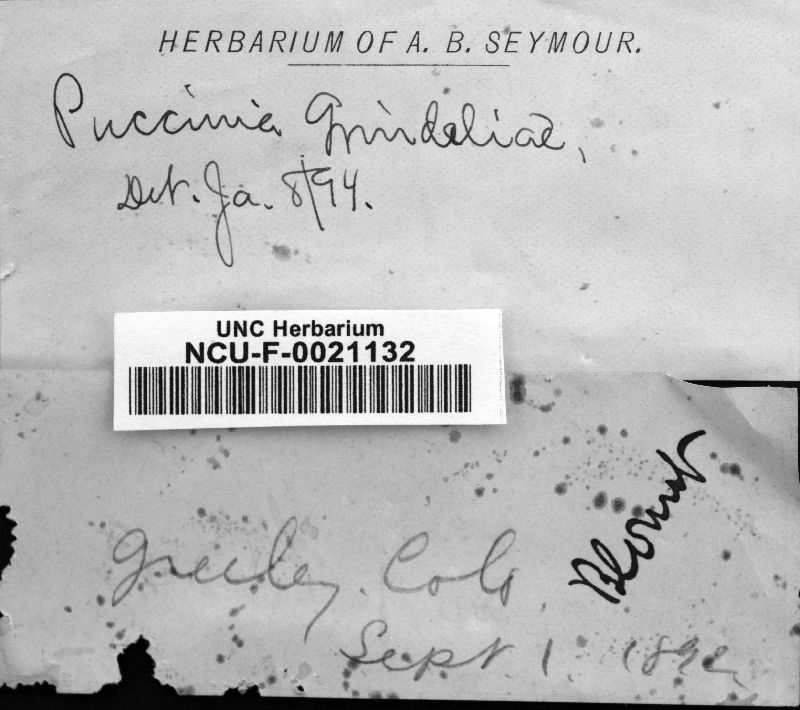 HERBARIUM OF A. B. SEYMOUR.
Puccinia Grindeliae,
Det. Ja. 8/94.
UNC Herbarium
NCU-F-0021132
Blount
Greeley. Colo.
Sept. 1. 1892